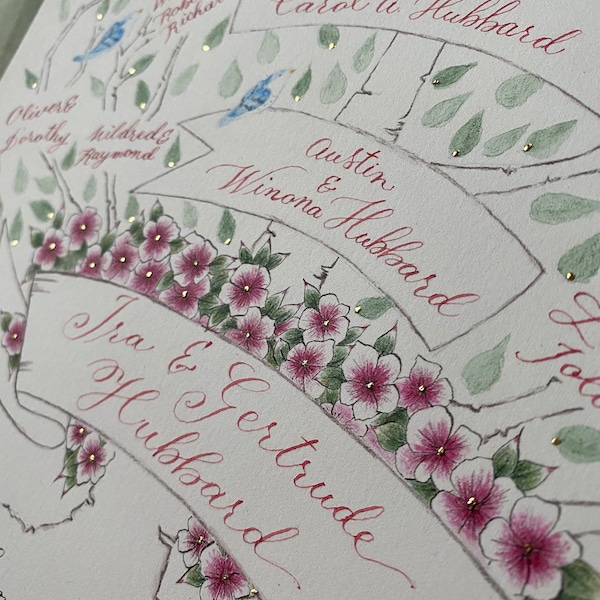 Richar
Carol A. Hubbard
Oliver &
Dorothy
Mildred &
Raymond
Austin
&
Winona Hubbard
Ira & Gertrude
Hubbard